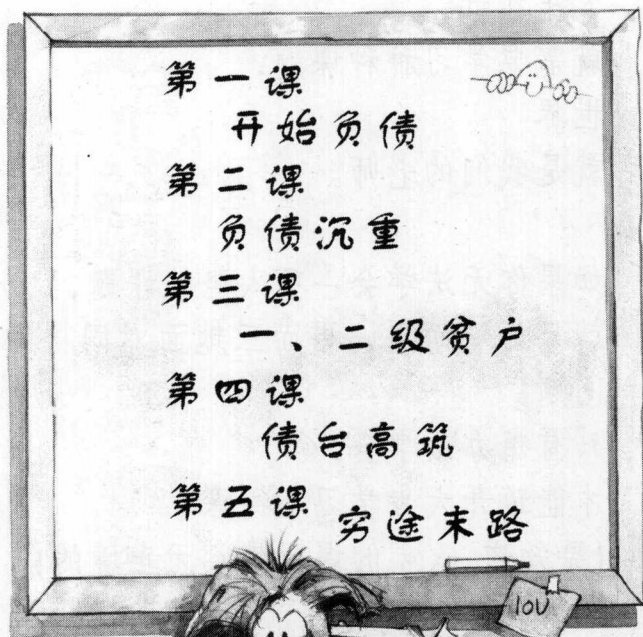 第一课
开始负债
第二课
负债沉重
第三课
一、二级贫户
第四课
债台高筑
第五课
穷途末路
IOU